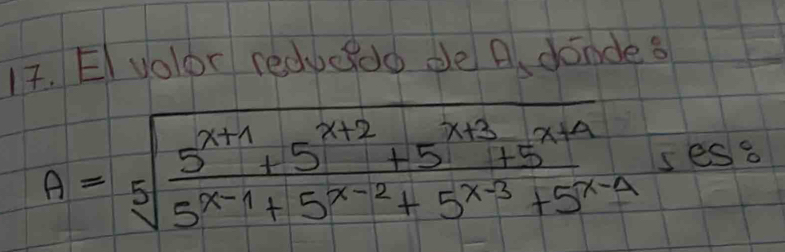 17. El valor reducido de A, dónde:
A = \sqrt[5]{\frac{5^{x+1} + 5^{x+2} + 5^{x+3} + 5^{x+4}}{5^{x-1} + 5^{x-2} + 5^{x-3} + 5^{x-4}}} , es: